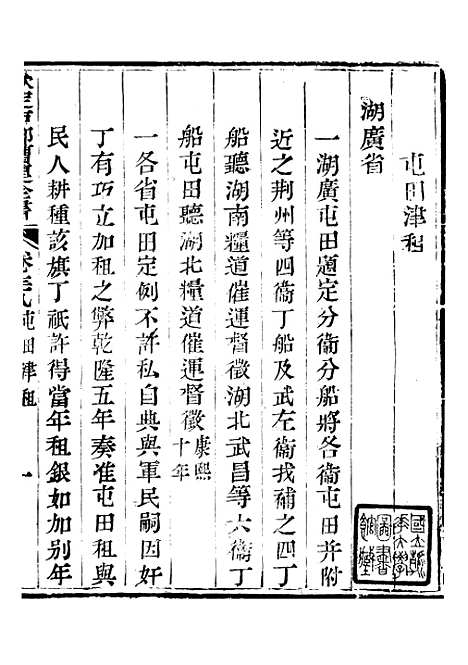 屯田津租
湖廣省
一湖廣屯田題定分衞分船將各衞屯田并附
近之荆州等四衞丁船及武左衞找補之四丁
船聽湖南糧道催運督徵湖北武昌等六衞丁
船屯田聽湖北糧道催運督徵康熙十年
一各省屯田定例不許私自典與軍民嗣因奸
丁有巧立加租之弊乾隆五年奏准屯田租與
民人耕種該旗丁祇許得當年租銀如加別年
屯田津租
一